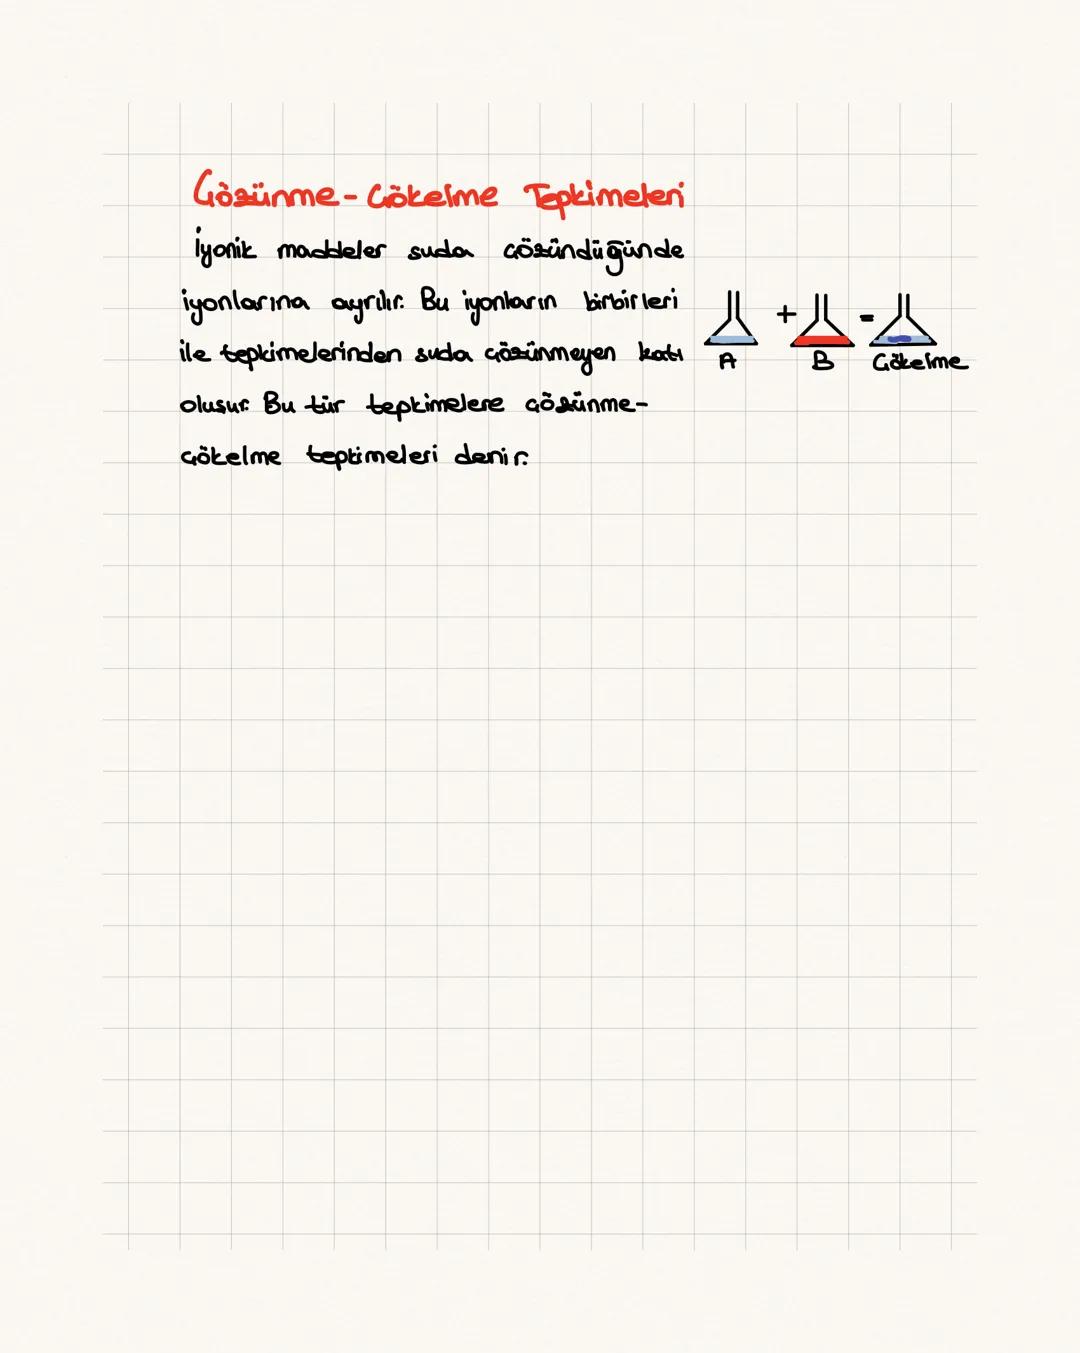 Çözünme-Çökelme Tepkimeleri
İyonik maddeler suda çözündüğünde
iyonlarına ayrılır. Bu iyonların birbirleri
ile tepkimelerinden suda çözünmeyen katı
oluşur. Bu tür tepkimelere çözünme-
çökelme tepkimeleri denir.
+ =
A B Çökelme